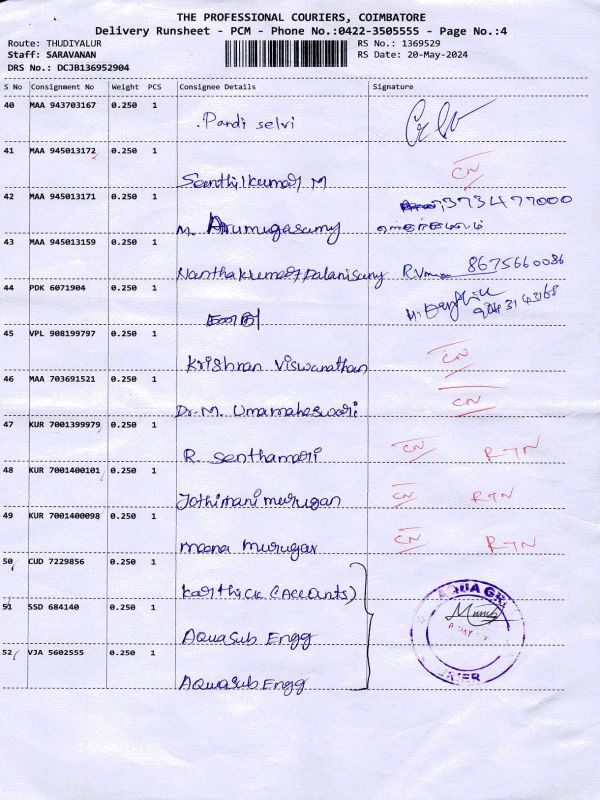 THE PROFESSIONAL COURIERS, COIMBATORE
Delivery Runsheet - PCM - Phone No.:0422-3505555 - Page No.:4
Route: THUDIYALUR RS No.: 1369529
Staff: SARAVANAN RS Date: 20-May-2024
DRS No.: DCJB136952904
S No Consignment No Weight PCS Consignee Details Signature
40 MAA 943703167 0.250 1 Pandi selvi
41 MAA 945013172 0.250 1 Senthilkumar M CN
42 MAA 945013171 0.250 1 M. Arumugasamy 7373477000
43 MAA 945013159 0.250 1 Nanthakumar Palanisamy 8675660086
44 PDK 6071904 0.250 1
45 VPL 908199797 0.250 1 Krishnan Viswanathan CN
46 MAA 703691521 0.250 1 Dr. M. Umamaheswari CN
47 KUR 7001399979 0.250 1 R. Senthamari CN RTN
48 KUR 7001400101 0.250 1 Jothimani murugan CN RTN
49 KUR 7001400098 0.250 1 meena murugan CN RTN
50 CUD 7229856 0.250 1 Karthick (Accounts)
51 SSD 684140 0.250 1 Aquasub Engg
52 VJA 5602555 0.250 1 Aquasub Engg
AQUA